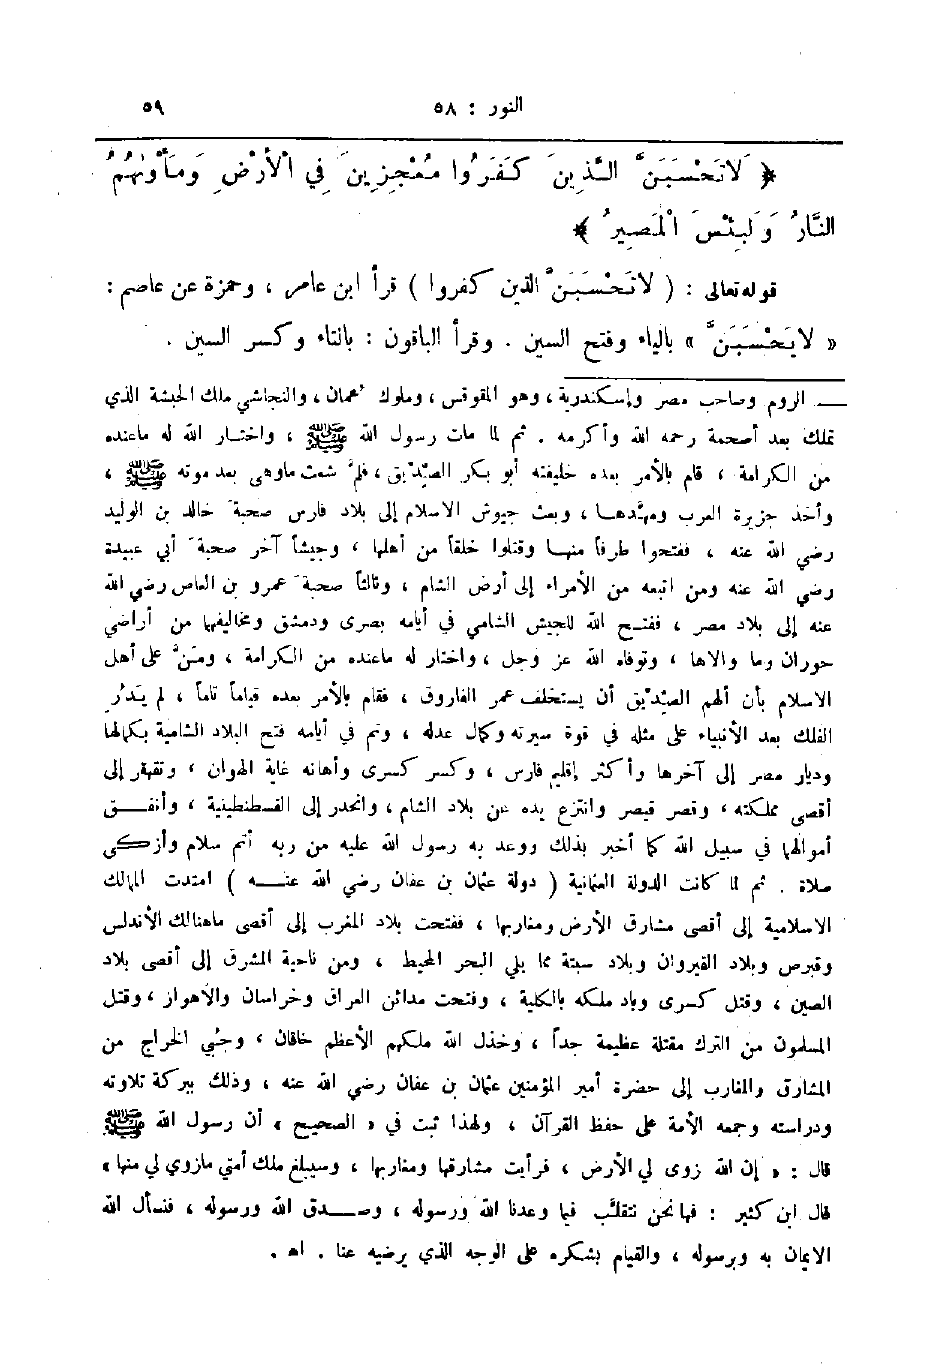 النور : ٥٨ ٥٩
﴿ لَا تَحْسَبَنَّ الَّذِينَ كَفَرُوا مُعْجِزِينَ فِي الْأَرْضِ وَمَأْوٰهُمُ
النَّارُ وَلَبِئْسَ الْمَصِيرُ ﴾
قوله تعالى : ( لا تَحْسَبَنَّ الذين كفروا ) قرأ ابن عامر ، وحمزة عن عاصم :
« لا يَحْسَبَنَّ » بالياء وفتح السين . وقرأ الباقون : بالتاء وكسر السين .
ــ الروم وصاحب مصر وإسكندرية ، وهو المقوقس ، وملوك عُمان ، والنجاشي ملك الحبشة الذي
تملك بعد أصحمة رحمه الله وأكرمه . ثم لما مات رسول الله ﷺ ، واختار الله له ماعنده
من الكرامة ، قام بالأمر بعده خليفته أبو بكر الصِّدِّيق ، فلمَّ شعث ماوهى بعد موته ﷺ ،
وأخذ جزيرة العرب ومهَّدهـا ، وبعث جيوش الاسلام إلى بلاد فارس صحبةَ خالد بن الوليد
رضي الله عنه ، ففتحوا طرفاً منهـا وقتلوا خلقاً من أهلها ، وجيشاً آخر صحبةَ أبي عبيدة
رضي الله عنه ومن اتبعه من الأمراء إلى أرض الشام ، وثالثاً صحبةَ عمرو بن العاص رضي الله
عنه إلى بلاد مصر ، ففتـح الله للجيش الشامي في أيامه بصرى ودمشق ومخاليفها من أراضي
حوران وما والاها ، وتوفاه الله عز وجل ، واختار له ماعنده من الكرامة ، ومنَّ على أهل
الاسلام بأن ألهم الصِّدِّيق أن يستخلف عمر الفاروق ، فقام بالأمر بعده قياماً تاماً ، لم يَدُر
الفلك بعد الأنبياء على مثله في قوة سيرته وكمال عدله ، وتم في أيامه فتح البلاد الشامية بكمالها
وديار مصر إلى آخرها وأكثر إقليم فارس ، وكسر كسرى وأهانه غاية الهوان ، وتقهقر إلى
أقصى مملكته ، وقصر قيصر وانتزع يده عن بلاد الشام ، وانحدر إلى القسطنطينية ، وأنفـق
أموالها في سبيل الله كما أخبر بذلك ووعد به رسول الله عليه من ربه أتم سلام وأزكى
صلاة . ثم لما كانت الدولة العثمانية ( دولة عثمان بن عفان رضي الله عنـه ) امتدت الممالك
الاسلامية إلى أقصى مشارق الأرض ومغاربها ، ففتحت بلاد المغرب إلى أقصى ماهنالك الأندلس
وقبرص وبلاد القيروان وبلاد سبتة مما يلي البحر المحيط ، ومن ناحية المشرق إلى أقصى بلاد
الصين ، وقتل كسرى وباد ملكه بالكلية ، وفتحت مدائن العراق وخراسان والأهواز ، وقتل
المسلمون من الترك مقتلة عظيمة جداً ، وخذل الله ملكهم الأعظم خاقان ، وجُبي الخراج من
المشارق والمغارب إلى حضرة أمير المؤمنين عثمان بن عفان رضي الله عنه ، وذلك ببركة تلاوته
ودراسته وجمعه الأمة على حفظ القرآن ، ولهذا ثبت في « الصحيح » أن رسول الله ﷺ
قال : « إن الله زوى لي الأرض ، فرأيت مشارقها ومغاربها ، وسيبلغ ملك أمتي مازوي لي منها »
قال ابن كثير : فها نحن نتقلَّب فيما وعدنا الله ورسوله ، وصـدق الله ورسوله ، فنسأل الله
الايمان به وبرسوله ، والقيام بشكره على الوجه الذي يرضيه عنا . اه .